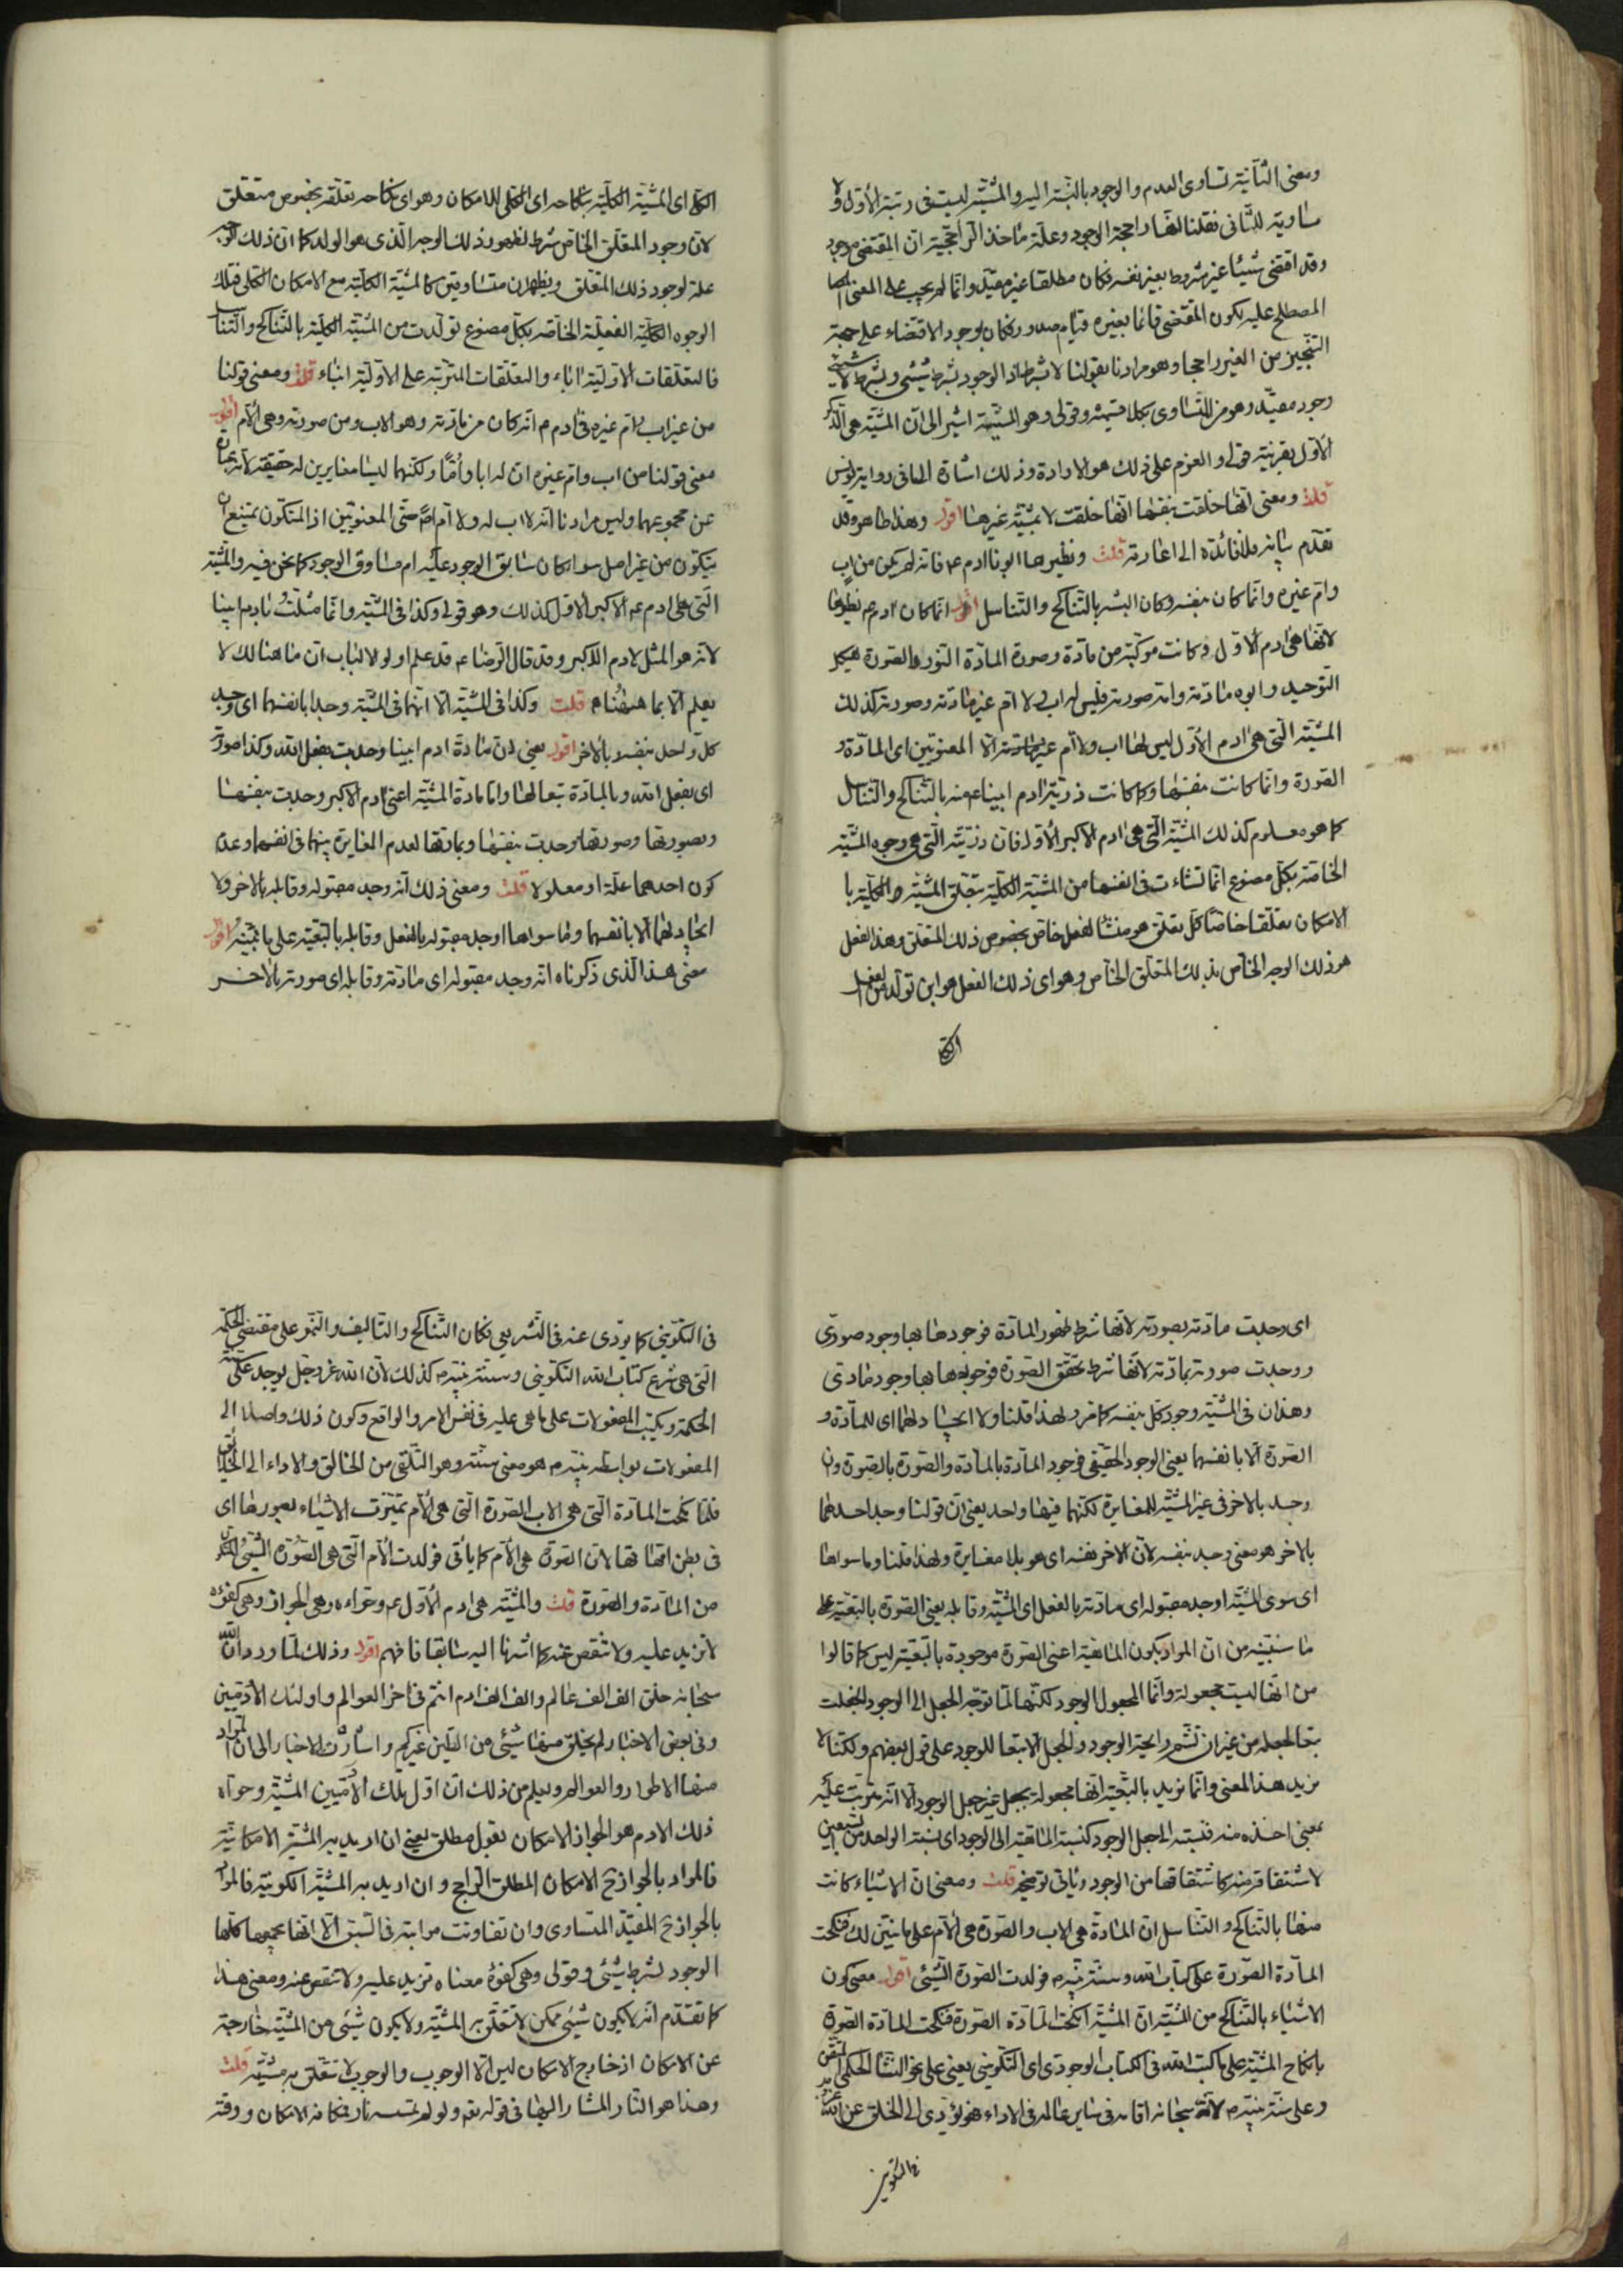 ومعنى الثانية تساوى العدم والوجود بالنسبة اليه والمشية ليست فى رتبة الأول ولا
مساوية للثانى فقلنا انها راجحة الوجود وعلة مأخذ الراجحية ان المقتضى موجود
وقد اقتضى شيئا غير مشروط بغير نفسه فكان مطلقا غير مقيد وانما لم يجب على المعنى
المصطلح عليه لكون المقتضى قائما بغيره قيام صدور وكان لوجود الاقتضاء على جهة
التنجيز من الغير راجحا وهو مرادنا بقولنا لا بشرط اذ الوجود بشرط شيئ وبشرط لا شيئ
وجود مقيد وهو من المتساوى بكلا قسميه وقولى وهو المشية اشير الى ان المشية هى الذكر
الأول بقرينة قوله والعزم على ذلك هو الارادة وذلك اشارة الى ما فى رواية يونس
قلت ومعنى انها خلقت بنفسها انها خلقت لا بمشية غيرها اقول وهذا ظاهر وقد
تقدم بيانه فلا فائدة الى اعادته قلت ونظيرها ابونا ادم ع فانه لم يكن من اب
وام غيره وانما كان بنفسه وكان البشر بالتناكح والتناسل اقول انما كان ادم ع نظيرها
لانها هى ادم الأول وكانت مركبة من مادة وصورة المادة النور والصورة هيكل
التوحيد وابوه مادته وامه صورته فليس له اب ولا ام غير مادته وصورته كذلك
المشية التى هى ادم الأول ليس لها اب ولا ام غير الا المعنويين اى المادة و
الصورة وانما كانت بنفسها وكما كانت ذرية ادم ابينا ع منه بالتناكح والتناسل
كما هو معلوم كذلك المشية التى هى ادم الاكبر الأول فان ذريته التى هى وجوه المشية
الخاصة بكل مصنوع انما نشاءت فى انفسها من المشية الكلية بتعلق المشية الكلية با
لامكان تعلقا خاصا كل تعلق هو منشأ لفعل خاص بخصوص ذلك المتعلق وهذا الفعل
هو ذلك الوجه الخاص بذلك المتعلق الخاص وهو اى ذلك الفعل هو ابن تولد من الفعل
الكلى
الكلى اى المشية الكلية بنكاحه اى الكلى للامكان وهو اى نكاحه تعلقه بخصوص متعلق
لان وجود المتعلق الخاص شرط لظهور ذلك الوجه الذى هو الولد كما ان ذلك الوجه
علة لوجود ذلك المتعلق ويظهران متساوقين كالمشية الكلية مع الامكان الكلى فتلك
الوجوه الكلية الفعلية الخاصة بكل مصنوع تولدت من المشية الكلية بالتناكح والتناسل
فالتعلقات الاولية اباء والتعلقات المترتبة على الاولية ابناء قلت ومعنى قولنا
من غير اب وام غيره فى ادم م انه كان من مادته وهو الاب ومن صورته وهى الأم اقول
معنى قولنا من اب وام غيره ان له ابا وأما ولكنهما ليسا مغايرين له حقيقة لانه عبارة
عن مجموعهما وليس مرادنا انه لا اب له ولا ام له حتى المعنويين اذ المتكون يمتنع ان
يتكون من غير اصل سواء كان سابق الوجود عليه ام مساوق الوجود كما نحن فيه والمشية
التى هى ادم ع الاكبر الاول كذلك وهو قولى وكذا فى المشية وانما مثلت بادم ابينا
لانه هو المثل لادم الاكبر وقد قال الرضا ع قد علم اولو الالباب ان ما هنالك لا
يعلم الا بما هيهنا قلت وكذا فى المشية الا انهما فى المشية وجدا بانفسهما اى وجد
كل واحد بنفسه بالاخر اقول يعنى ان مادة ادم ابينا وجدت بفعل الله وكذا صورته
اى بفعل الله وبالمادة تبعا لها واما مادة المشية اعنى ادم الاكبر وجدت بنفسها
وبصورتها وصورتها وجدت بنفسها وبمادتها لعدم المغايرة بينهما فى انفسهما وعدم
كون احدهما علة او معلولا قلت ومعنى ذلك انه وجد مقبوله وقابله بالاخر ولا
اتحاد لهما الا بانفسهما وما سواها اوجد مقبوله بالفعل وقابله بالتبعية على ما نبينه اقول
معنى هذا الذى ذكرناه انه وجد مقبوله اى مادته وقابله اى صورته بالاخر
اى وجدت مادته بصورته لانها شرط ظهور المادة فوجودها بها وجود صورى
ووجدت صورته بمادته لانها شرط تحقق الصورة فوجودها بها وجود مادى
وهذان فى المشية وجود كل بنفسه كما مر ولهذا قلنا ولا ايجاد لهما اى للمادة و
الصورة الا بانفسهما يعنى الوجود الحقيقى فوجود المادة بالمادة والصورة بالصورة وان
وجد بالاخر فى غير المشية للمغايرة لكنهما فيها واحد يعنى ان قولنا وجد احدهما
بالاخر هو معنى وجد بنفسه لان الاخر نفسه اى هو بلا مغايرة ولهذا قلنا وما سواها
اى سوى المشية اوجد مقبوله اى مادته بالفعل اى المشية وقابله يعنى الصورة بالتبعية على
ما سنبينه من ان المراد بكون الماهية اعنى الصورة موجودة بالتبعية ليس كما قالوا
من انها ليست مجعولة وانما المجعول الوجود لكنها لما توجه الجعل الى الوجود انجعلت
بتبعا لجعله من غير ان تشم رائحة الوجود والجعل الا تبعا للوجود على قول بعضهم ولكنا لا
نريد هذا المعنى وانما نريد بالتبعية انها مجعولة بجعل غير جعل الوجود الا انه مترتب عليه
بمعنى اخذه منه فنسبته الى جعل الوجود كنسبة الماهية الى الوجود اى نسبة الواحد من السبعين
لاشتقاقه منه كاشتقاقها من الوجود ويأتى توضيحه قلت ومعنى ان الاشياء كانت
منها بالتناكح والتناسل ان المادة هى الاب والصورة هى الأم على ما نبين لك فنكحت
المادة الصورة على كتاب الله وسنة نبيه م فولدت الصورة الشيئ اقول معنى كون
الاشياء بالتناكح من المشية ان المشية انكحت المادة الصورة فنكحت المادة الصورة
بانكاح المشية على ما كتب الله فى الكتاب الوجودى اى التكوينى يعنى على نحو النشأ الحكمى المتقن
وعلى سنة نبيه م لانه سبحانه اقامه فى سائر عالمه فى الاداء فهو يؤدى الى الخلق عن الله
فى التكوين
فى التكوينى كما يؤدى عنه فى التشريعى فكان التناكح والتاليف والنمو على مقتضى الحكمة
التى هى شرع كتاب الله التكوينى وسنة نبيه م كذلك لان الله عز وجل يوجد على
الحكمة ويكتب المفعولات على ما هى عليه فى نفس الامر والواقع وكون ذلك واصلا الى
المفعولات بواسطة نبيه م هو معنى سنته وهو التلقى من الخالق والاداء الى الخلايق
فلما نكحت المادة التى هى الاب الصورة التى هى الأم تميزت الاشياء بصورها اى
فى بطن امها فها لان الصورة هى الأم كما يأتى فولدت الأم التى هى الصورة الشيئ المتكون
من المادة والصورة قلت والمشية هى ادم الأول ع وحواءه هى الجواز وهى كفؤه
لا تزيد عليه ولا تنقص عنه كما اشرنا اليه سابقا فافهم اقول وذلك لما ورد ان الله
سبحانه خلق الف الف عالم والف الف ادم انتم فى اخر العوالم واولئك الأدميين
وفى بعض الاخبار لم يخلق منها شيئ من الطين غيركم واشارت الاخبار الى ان المراد
منها الاطوار والعوالم ويعلم من ذلك ان اول تلك الأدميين المشية وحواء
ذلك الادم هو الجواز الامكان بقول مطلق يعنى ان اريد به المشية الامكانية
فالمراد بالجواز ح الامكان المطلق الراجح وان اريد به المشية الكونية فالمراد
بالجواز ح المقيد المتساوى وان تفاوتت مراتبه فى السبق الا انها بجميعها كلها
الوجود بشرط شيئ وقولى وهى كفؤه معناه تزيد عليه ولا تنقص عنه ومعنى هذا
كما تقدم انه لا يكون شيئ ممكن لا تتعلق به المشية ولا يكون شيئ من المشية خارجة
عن الامكان اذ خارج الامكان ليس الا الوجوب والوجوب لا تتعلق به مشية قلت
وهذا هو النار المشار اليها فى قوله تعه ولو لم تمسسه نار فكانه الامكان ووقته